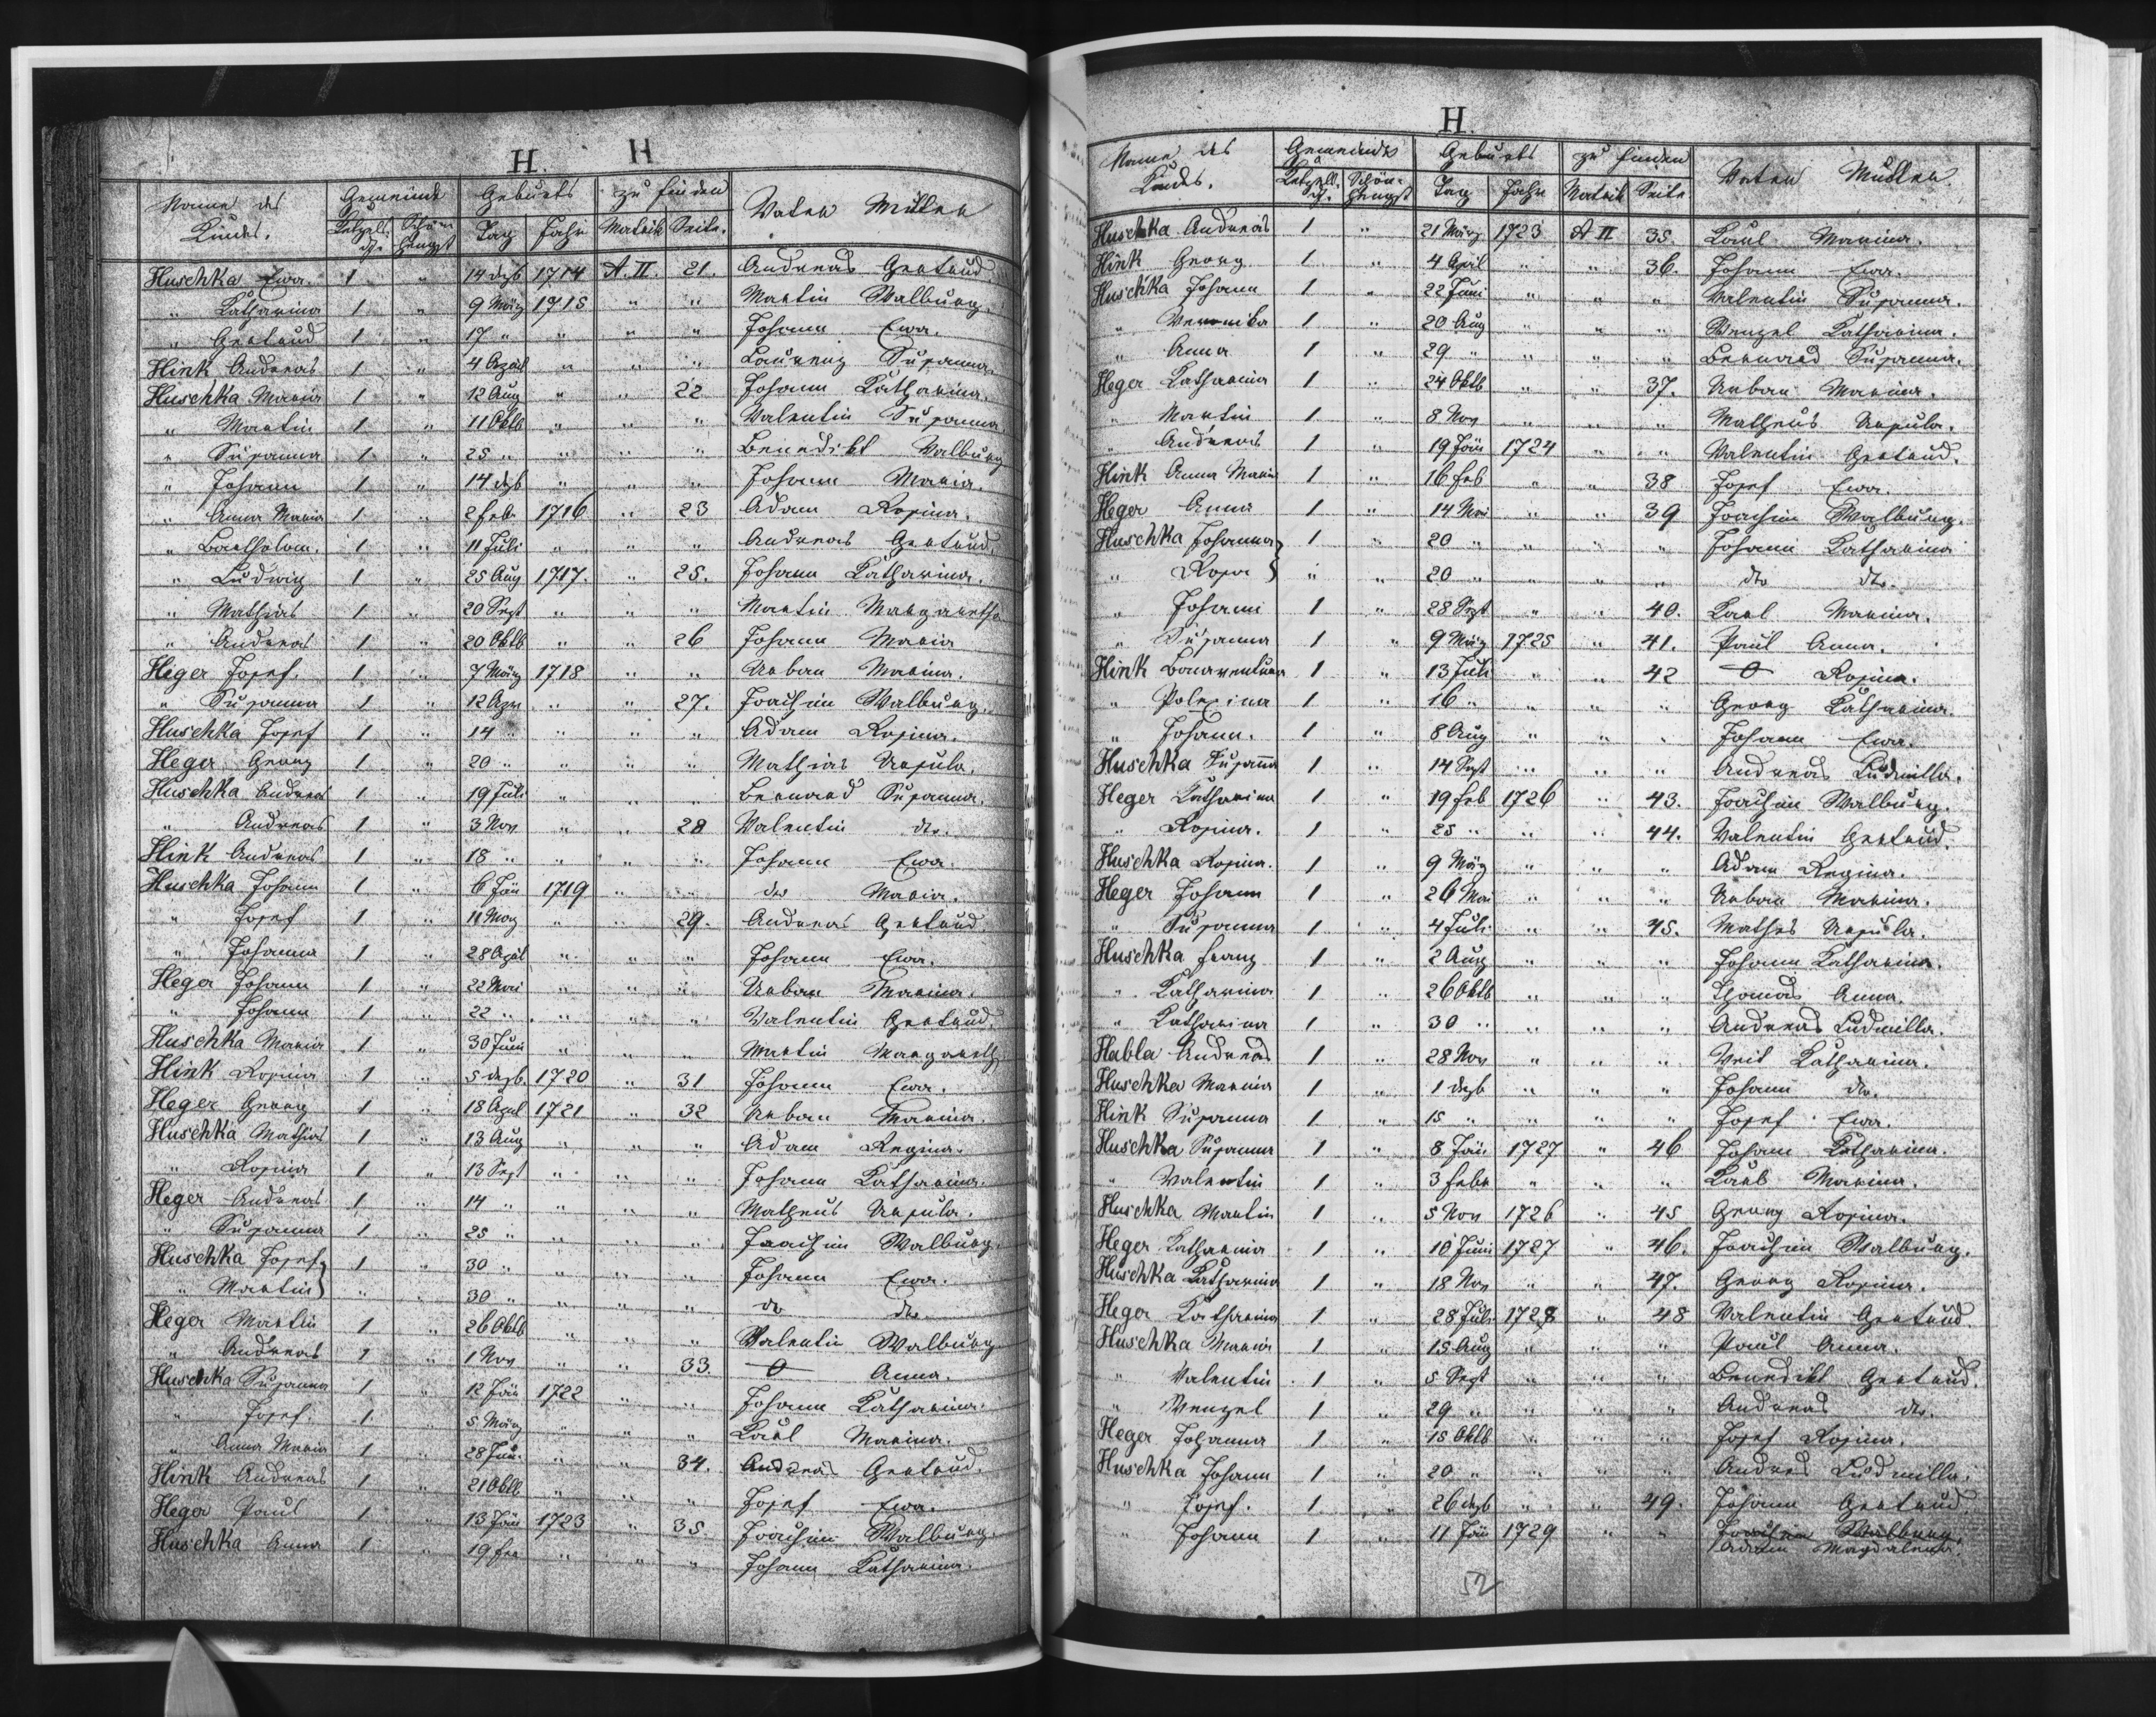 H. H
Name des Kindes. Gemeinde Geburts zu finden Vater Mutter
Ketzels-df. Schön-hengst Tag Jahr Matrik Seite.
Huschka Ewa. 1 " 14 dezb 1714 A. II. 21. Andreas Gertrud.
" Katharina 1 " 9 März 1715 " " Martin Walburg.
" Gertrud 1 " 17 " " " " Johann Ewa.
Hink Andreas 1 " 4 April " " " Laurenz Susanna.
Huschka Maria 1 " 12 Aug " " 22 Johann Katharina.
" Martin 1 " 11 Oktb " " " Valentin Susanna
" Susanna 1 " 25 " " " " Benedikt Walburg
" Johann 1 " 14 dezb " " " Johann Maria.
" Anna Maria 1 " 2 febr 1716 " 23 Adam Rosina.
" Bartholom. 1 " 11 Juli " " " Andreas Gertrud.
" Ludwig 1 " 25 Aug 1717. " 25. Johann Katharina.
" Mathias 1 " 20 Sept " " " Martin Margaretha
" Andreas 1 " 20 Oktb " " 26 Johann Maria
Heger Josef. 1 " 7 März 1718 " " Urban Marina.
" Susanna 1 " 12 Apr " " 27. Joachim Walburg.
Huschka Josef 1 " 14 " " " " Adam Rosina.
Heger Georg 1 " 20 " " " " Mathias Ursula.
Huschka Andreas 1 " 19 Juli " " " Bernard Susanna.
" Andreas 1 " 3 Nov " " 28 Valentin dto.
Hink Andreas 1 " 18 " " " " Johann Ewa.
Huschka Johann 1 " 6 Jän 1719 " " dto Maria.
" Josef 1 " 11 März " " 29. Andreas Gertrud
" Johanna 1 " 28 April " " " Johann Ewa.
Heger Johann 1 " 22 Mai " " " Urban Marina.
" Johann 1 " 22 " " " " Valentin Gertrud.
Huschka Maria 1 " 30 Juni " " " Martin Margareth
Hink Rosina 1 " 5 dezb. 1720 " 31 Johann Ewa.
Heger Georg 1 " 18 April 1721 " 32 Urban Marina.
Huschka Mathias 1 " 13 Aug " " " Adam Regina.
" Rosina 1 " 13 Sept " " " Johann Katharina.
Heger Andreas 1 " 14 " " " " Matheus Ursula.
" Susanna 1 " 25 " " " " Joachim Walburg.
Huschka Josef } 1 " 30 " " " " Johann Ewa.
" Martin } " " 30 " " " " dto dto.
Heger Martin 1 " 26 Oktb " " " Valentin Walburg
" Andreas 1 " 1 Nov " " 33. O Anna.
Huschka Susanna 1 " 12 Jän 1722 " " Johann Katharina.
" Josef. 1 " 5 März " " " Karl Marina.
" Anna Maria 1 " 28 Jun. " " 34. Andreas Gertrud.
Hink Andreas 1 " 21 Oktb " " " Josef Ewa.
Heger Paul 1 " 13 Jän 1723 " 35. Joachim Walburg.
Huschka Anna 1 " 19 feb " " " Johann Katharina.
H.
Name des Kindes. Gemeinde Geburts zu finden Vater Mutter
Ketzels-df. Schön-hengst Tag Jahr Matrik Seite
Huschka Andreas 1 " 21 März 1723 A II 35. Karl Marina.
Hink Georg 1 " 4 April " " 36. Johann Ewa.
Huschka Johann 1 " 22 Juni " " " Valentin Susanna.
" Veronika 1 " 20 Aug " " " Wenzel Katharina.
" Anna 1 " 29 " " " " Bernard Susanna.
Heger Katharina 1 " 24 Oktb " " 37. Urban Marina.
" Martin 1 " 8 Nov " " " Matheus Ursula.
" Andreas 1 " 19 Jän 1724 " " Valentin Gertrud.
Hink Anna Maria 1 " 16 feb " " 38 Josef Ewa.
Heger Anna 1 " 14 Mai " " 39 Joachim Walburg.
Huschka Johanna } 1 " 20 " " " " Johann Katharina
" Rosa } " " 20 " " " " dto dto.
" Johann 1 " 28 Sept " " 40. Karl Marina.
" Susanna 1 " 9 März 1725 " 41. Paul Anna.
Hink Bonaventura 1 " 13 Juli " " 42 O Rosina.
" Polexina 1 " 16 " " " " Georg Katharina.
" Johann. 1 " 8 Aug " " " Johann Ewa.
Huschka Susanna 1 " 14 Sept " " " Andreas Ludmilla.
Heger Katharina 1 " 19 feb 1726 " 43. Joachim Walburg.
" Rosina. 1 " 25 " " " 44. Valentin Gertrud.
Huschka Rosina. 1 " 9 März " " " Adam Regina.
Heger Johann 1 " 26 Mai " " " Urban Marina.
" Susanna 1 " 4 Juli " " 45. Mathes Ursula.
Huschka Franz 1 " 2 Aug " " " Johann Katharina.
" Katharina 1 " 26 Oktb " " " Thomas Anna.
" Katharina 1 " 30 " " " " Andreas Ludmilla.
Habla Andreas 1 " 28 Nov " " " Veit Katharina.
Huschka Marina 1 " 1 dezb " " " Johann dto.
Hink Susanna 1 " 15 " " " " Josef Ewa.
Huschka Susanna 1 " 8 Jän 1727 " 46 Johann Katharina.
" Valentin 1 " 3 febr " " " Karl Marina.
Huschka Martin 1 " 5 Nov 1726 " 45 Georg Rosina.
Heger Katharina 1 " 10 Juni 1727 " 46. Joachim Walburg.
Huschka Katharina 1 " 18 Nov " " 47. Georg Rosina.
Heger Katharina 1 " 28 Juli 1728 " 48 Valentin Gertrud.
Huschka Maria 1 " 15 Aug " " " Paul Anna.
" Valentin 1 " 5 Sept " " " Benedikt Gertrud.
" Wenzel 1 " 29 " " " " Andreas dto.
Heger Johanna 1 " 15 Oktb " " " Josef Rosina.
Huschka Johann 1 " 20 " " " " Andreas Ludmilla.
" Josef. 1 " 26 dezb " " 49. Johann Gertrud
" Johann 1 " 11 Jän 1729 " " Joachim Walburg.
Adam Magdalena.
52